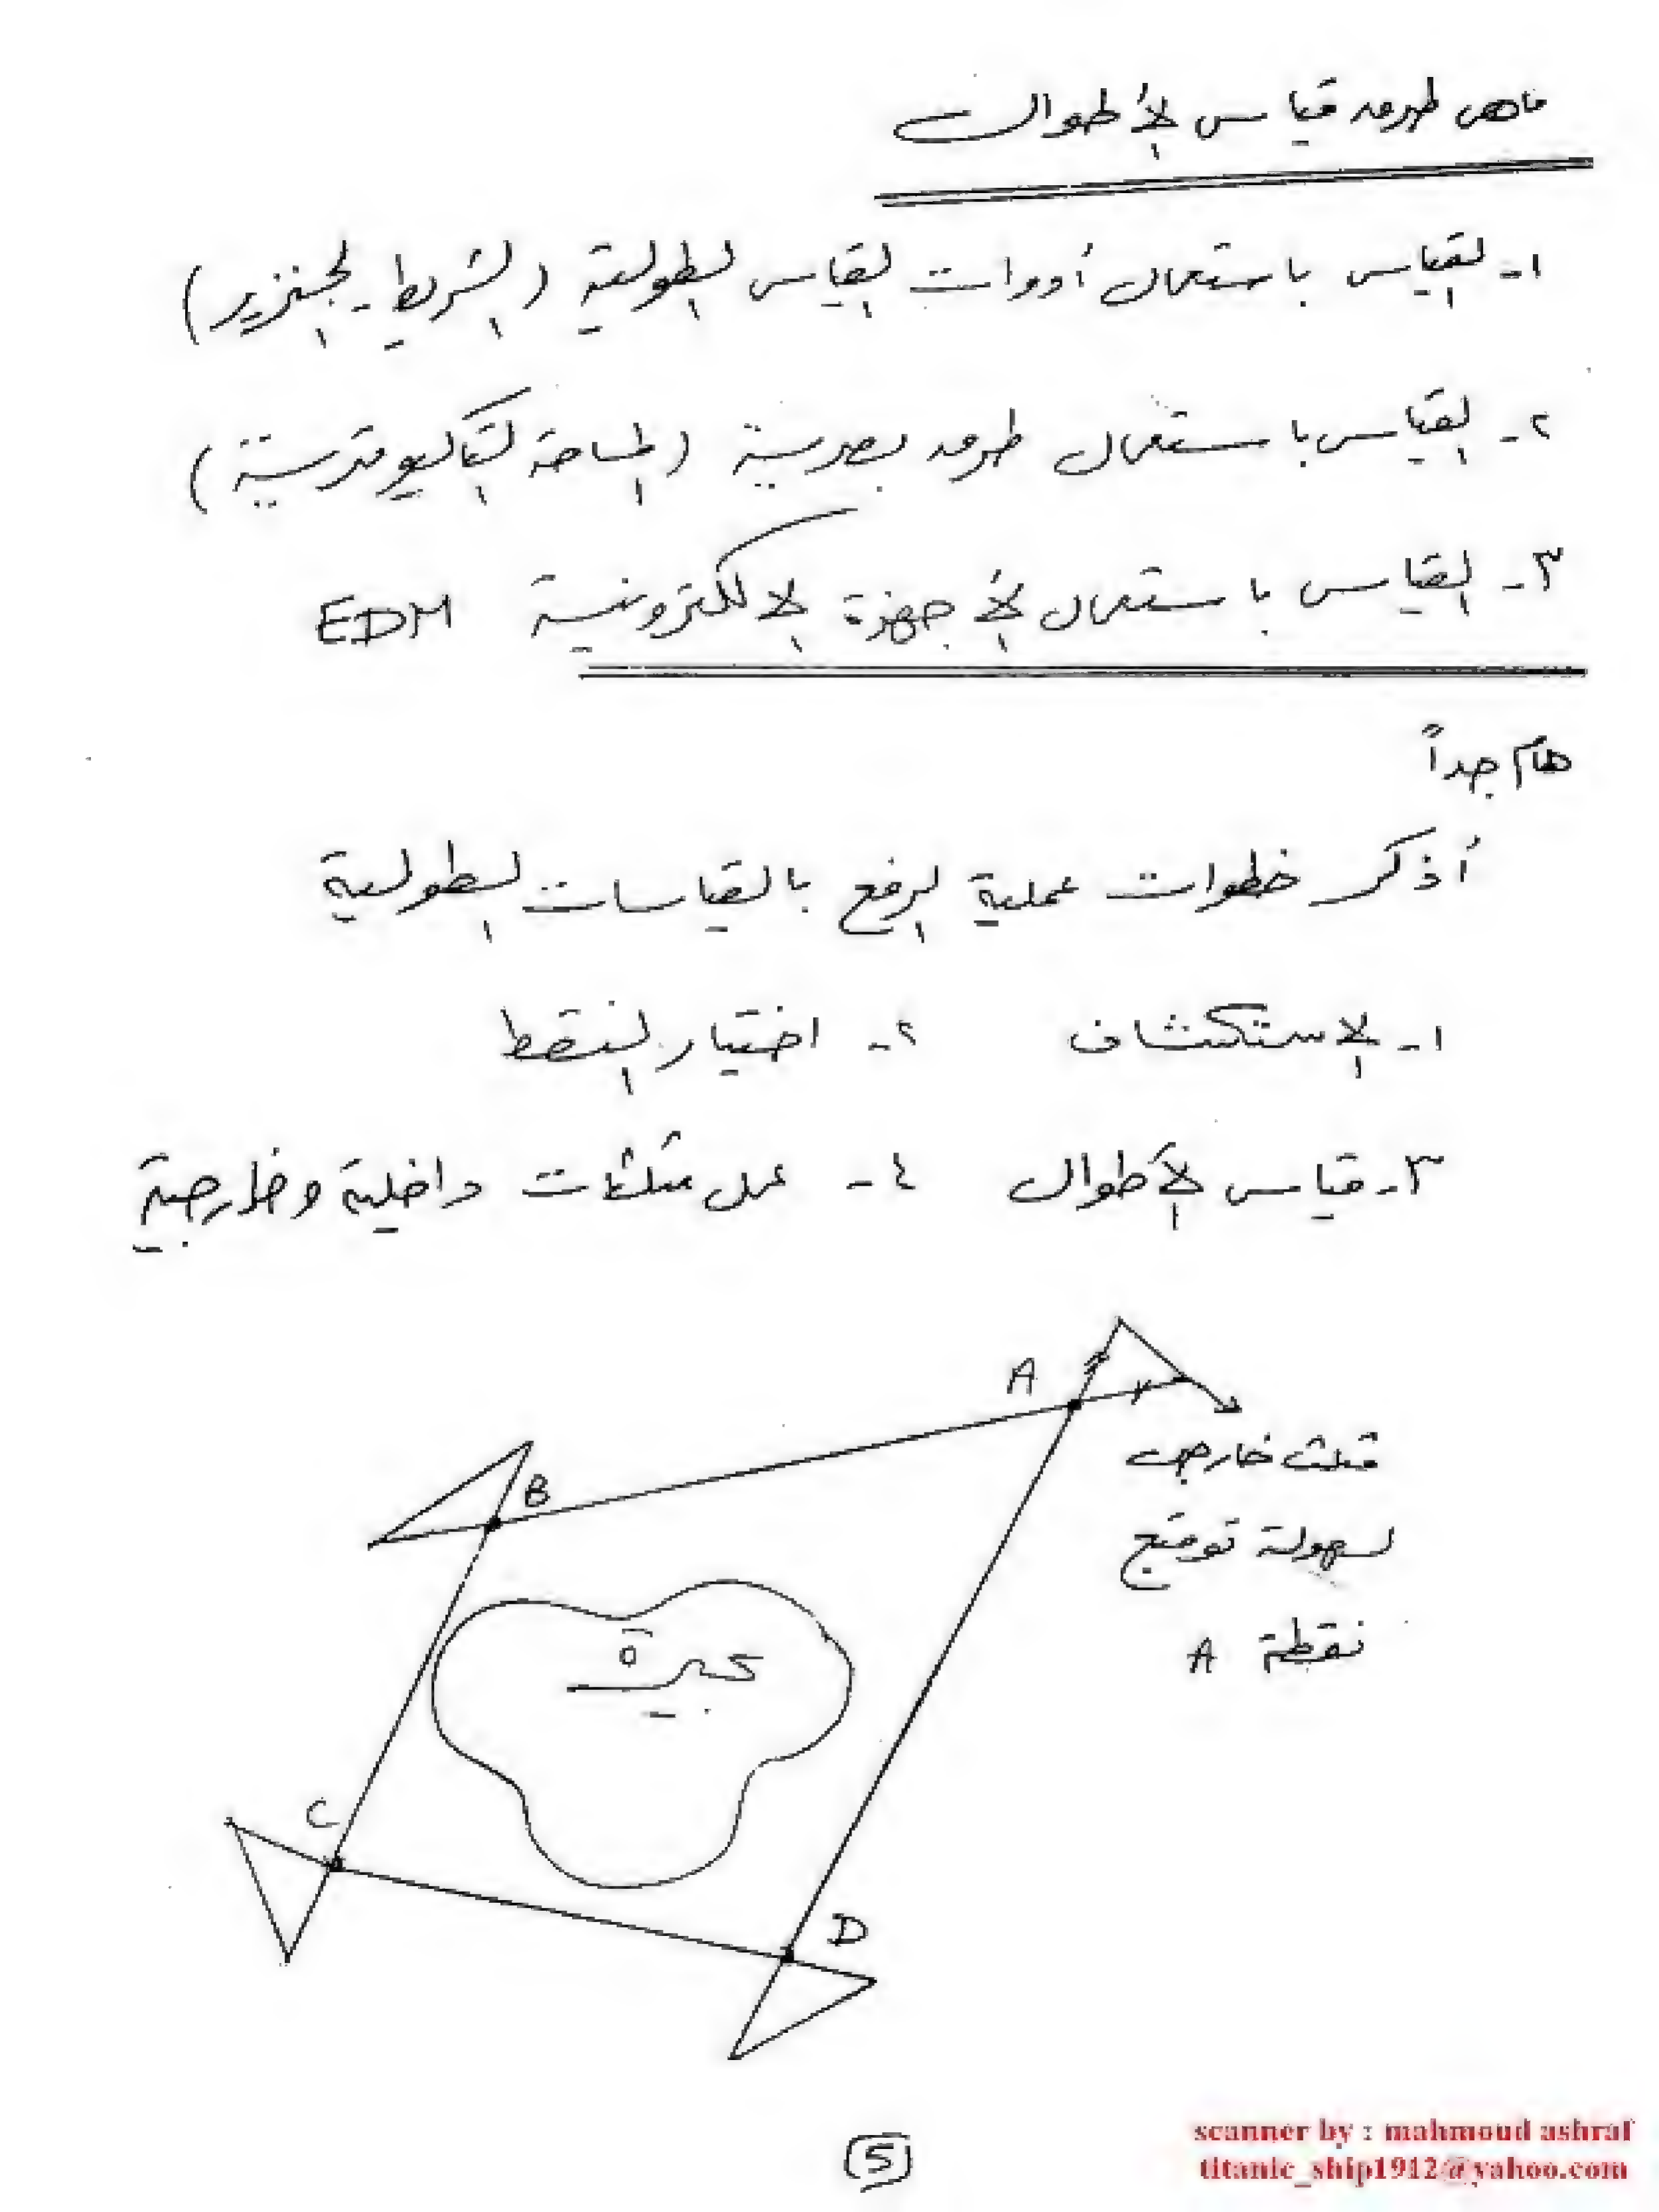 ماهى طرق قياس الأطوال
١- القياس باستعمال أدوات القياس الطولية (الشريط - الجنزير)
٢- القياس باستعمال طرق بصرية (المساحة التاكيومترية)
٣- القياس باستعمال الأجهزة الالكترونية EDM
هام جداً
أذكر خطوات عملية الرفع بالقياسات الطولية
١- الاستكشاف ٢- اختيار النقط
٣- قياس الأطوال ٤- عمل مثلثات داخلية وخارجية
A
مثلث خارجى
B
لسهولة توقيع
نقطة A
بحيرة
C
D
5
scanner by : mahmoud ashraf
titanic_ship1912@yahoo.com